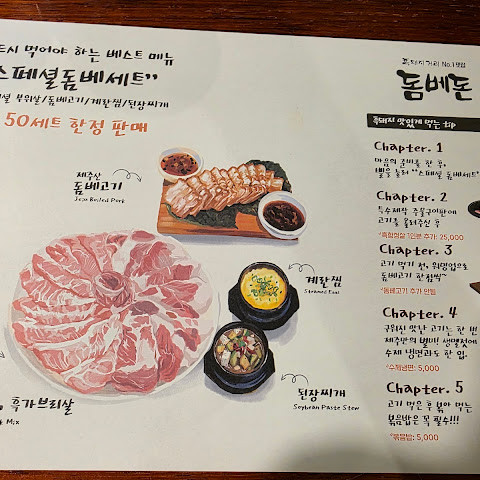 드시 먹어야 하는 베스트 메뉴
스페셜돔베세트"
부위살/돔베고기/계란찜/된장찌개
50세트 한정 판매
제주산
돔베고기
Jeju Boiled Pork
계란찜
Steamed Egg
된장찌개
Soybean Paste Stew
후가브리살
Mix
흑돼지거리 No.1 맛집
돔베돈
흑돼지 맛있게 먹는 tip
Chapter. 1
마음의 준비를 한 후,
벨을 눌러 "스페셜 돔베세트"
Chapter. 2
특수제작 주물구이판에
고기를 올려주신 후
*특합항살 1인분 추가: 25,000
Chapter. 3
고기 먹기 전, 워밍업으로
돔베고기 한점씩~
*돔베고기 추가 안됨
Chapter. 4
구워진 맛난 고기는 한 번
제주만의 별미! 생멜젓에
수제 냉면과도 한 입.
*수제냉면: 5,000
Chapter. 5
고기 먹은 후 볶아 먹는
볶음밥은 꼭 필수!!!
*볶음밥: 5,000